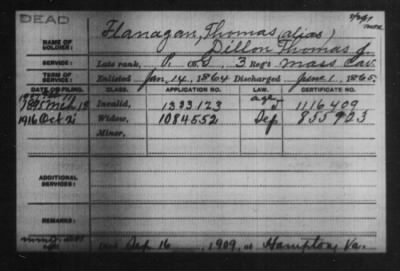 DEAD
NAME OF SOLDIER: Flanagan, Thomas (alias)
Dillon Thomas J.
SERVICE: Late rank, P. Co G, 3 Reg't Mass Cav.
TERM OF SERVICE: Enlisted Jan. 14, 1864 Discharged June 1, 1865.
DATE OF FILING. CLASS. APPLICATION NO. LAW. CERTIFICATE NO.
1895 Mch 18 Invalid, 1333123 1116409
1916 Oct 21 Widow, 1084552 Dep 855923
Minor,
ADDITIONAL SERVICES:
REMARKS:
Died Sep 16, 1909, at Hampton, Va.